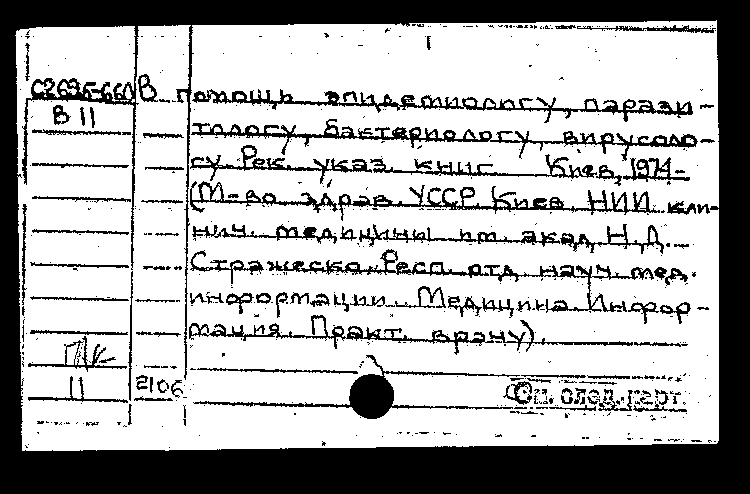 С2635-660 В помощь эпидемиологу, парази-
В 11 тологу, бактериологу, вирусоло-
гу. Рек. указ. книг. Киев, 1974-
(М-во здрав. УССР. Киев. НИИ кли-
нич. медицини им. акад. Н.Д.
Стражеско. Респ. отд. науч. мед.
информации. Медицина. Инфор-
мация. Практ. врачу).
11 2106
См. след. карт.